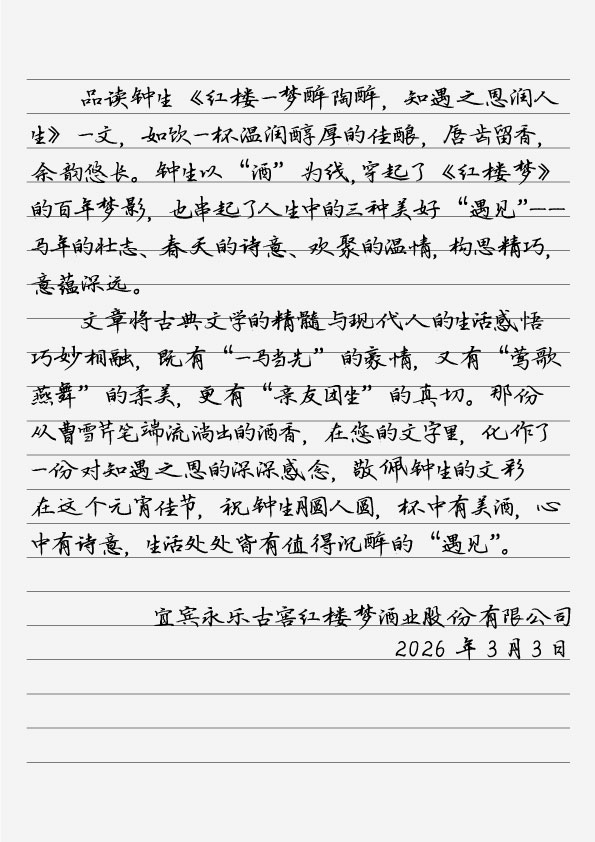 品读钟生《红楼一梦醉陶醉，知遇之恩润人
生》一文，如饮一杯温润醇厚的佳酿，唇齿留香，
余韵悠长。钟生以“酒”为线，穿起了《红楼梦》
的百年梦影，也串起了人生中的三种美好“遇见”——
马年的壮志、春天的诗意、欢聚的温情，构思精巧，
意蕴深远。
文章将古典文学的精髓与现代人的生活感悟
巧妙相融，既有“一马当先”的豪情，又有“莺歌
燕舞”的柔美，更有“亲友团坐”的真切。那份
从曹雪芹笔端流淌出的酒香，在您的文字里，化作了
一份对知遇之恩的深深感念，敬佩钟生的文彩
在这个元宵佳节，祝钟生月圆人圆，杯中有美酒，心
中有诗意，生活处处皆有值得沉醉的“遇见”。
宜宾永乐古窖红楼梦酒业股份有限公司
2026 年 3 月 3 日